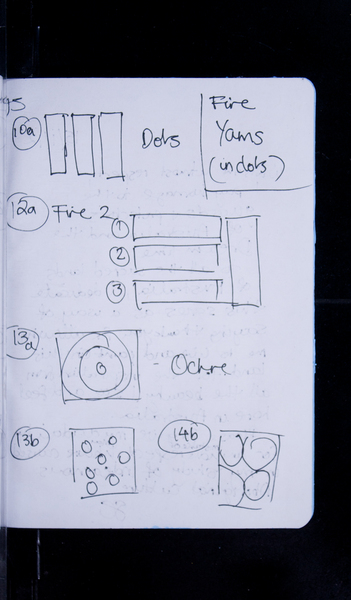 95
10a
Dots
Fire
Yams
(in dots)
12a Fire 2
1
2
3
13a
- Ochre
13b
14b